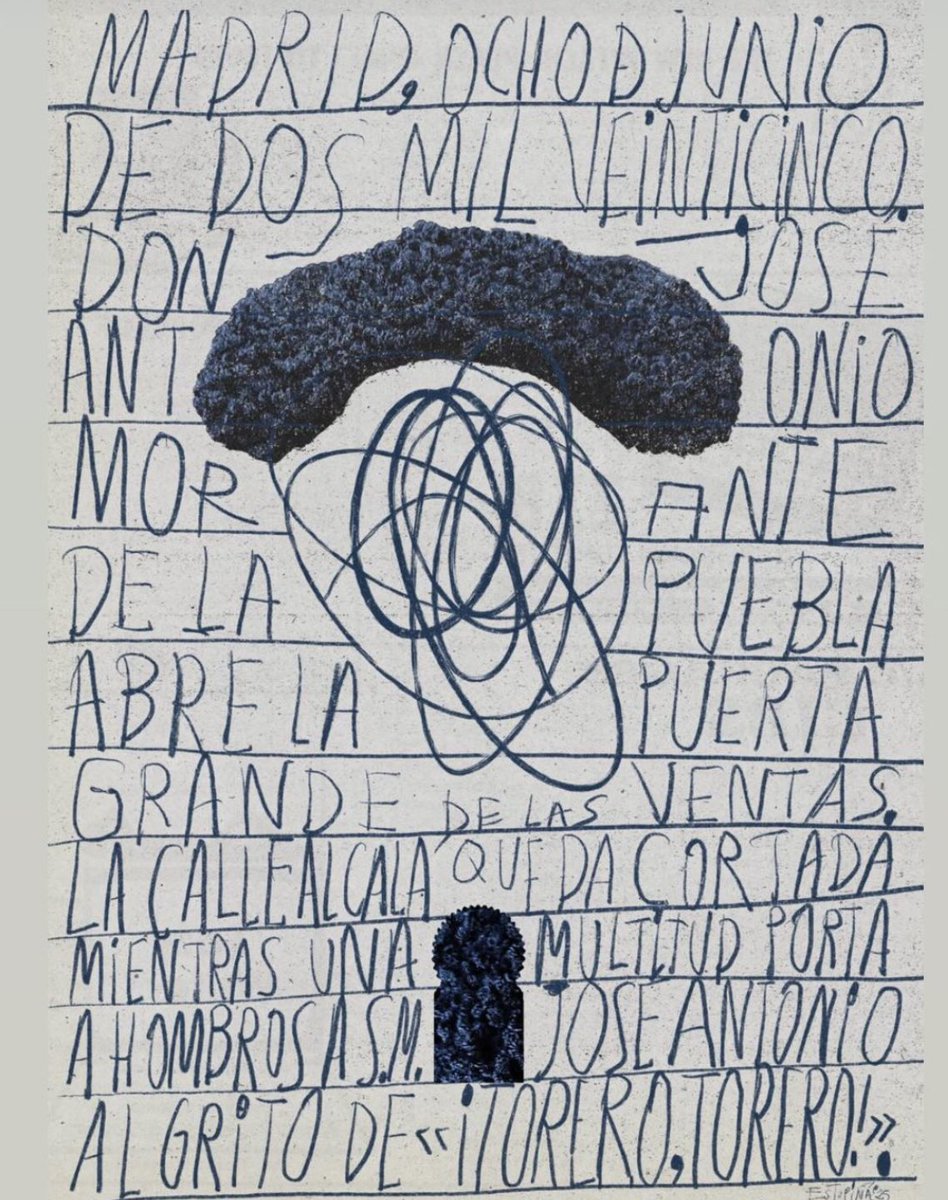 MADRID, OCHO D JUNIO
DE DOS MIL VEINTICINCO.
DON JOSE
ANTONIO
MORANTE
DE LA PUEBLA
ABRE LA PUERTA
GRANDE DE LAS VENTAS.
LA CALLE ALCALA QUEDA CORTADA
MIENTRAS UNA MULTITUD PORTA
A HOMBROS A S.M. JOSE ANTONIO
AL GRITO DE «¡TORERO, TORERO!»